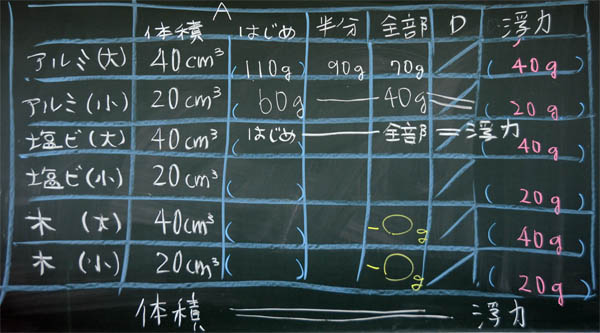 A
体積 はじめ 半分 全部 D 浮力
アルミ(大) 40cm³ (110g) 90g 70g (40g)
アルミ(小) 20cm³ 60g — 40g = (20g)
塩ビ(大) 40cm³ はじめ — 全部 = 浮力 (40g)
塩ビ(小) 20cm³ ( ) (20g)
木(大) 40cm³ ( ) -○g (40g)
木(小) 20cm³ ( ) -○g (20g)
体積 = 浮力